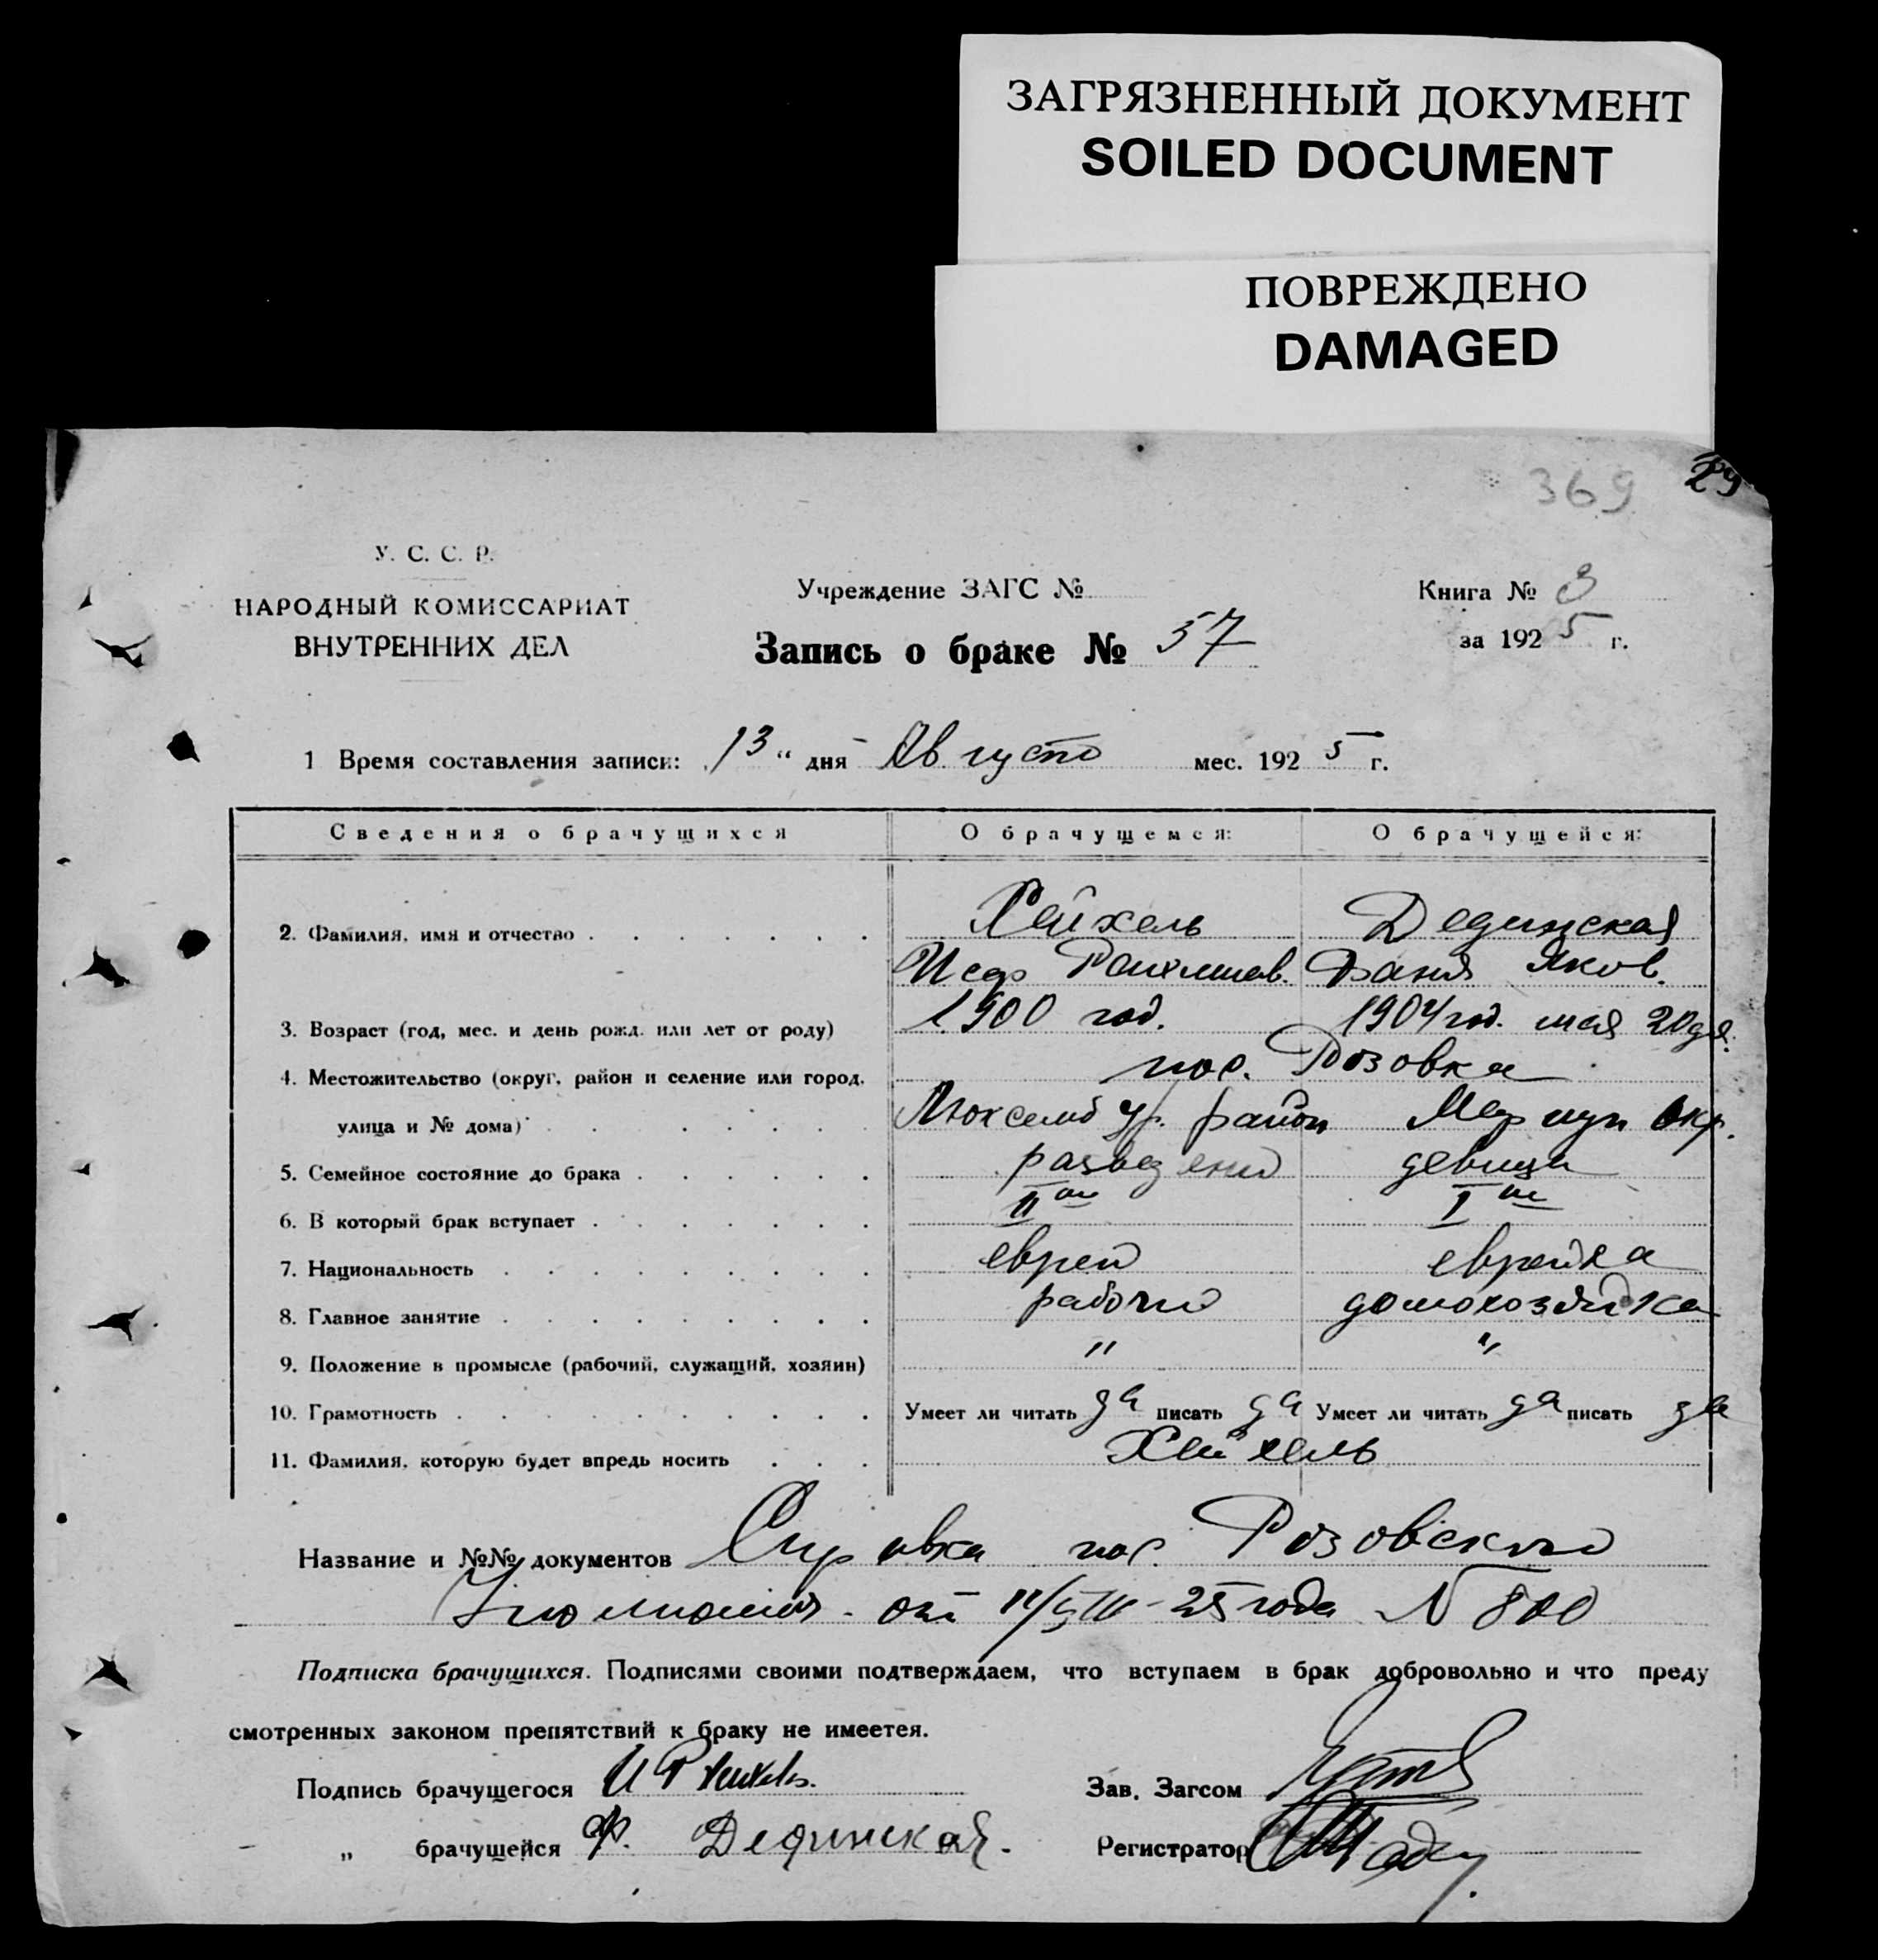 ЗАГРЯЗНЕННЫЙ ДОКУМЕНТ
SOILED DOCUMENT
ПОВРЕЖДЕНО
DAMAGED
369 29
У. С. С. Р.
НАРОДНЫЙ КОМИССАРИАТ
ВНУТРЕННИХ ДЕЛ
Учреждение ЗАГС №
Запись о браке № 57
Книга № 3
за 1925 г.
1 Время составления записи: 13 " дня Августа мес. 1925 г.
Сведения о брачущихся О брачущемся: О брачущейся:
2. Фамилия, имя и отчество Хейхель Дединская
Фаня Яков.
3. Возраст (год, мес. и день рожд. или лет от роду) 1900 год. 1904 год. мая 20 дня.
4. Местожительство (округ, район и селение или город, пос. Розовка
улица и № дома) Люксембург. район Мариуп Окр.
5. Семейное состояние до брака разведений девица
6. В который брак вступает II ой I ый
7. Национальность еврей еврейка
8. Главное занятие рабочий домохозяйка
9. Положение в промысле (рабочий, служащий, хозяин) " "
10. Грамотность Умеет ли читать да писать да Умеет ли читать да писать да
11. Фамилия, которую будет впредь носить Хейхель
Название и №№ документов Справка пос. Розовского
от /VIII-25 года N 800
Подписка брачущихся. Подписями своими подтверждаем, что вступаем в брак добровольно и что преду
смотренных законом препятствий к браку не имеетея.
Подпись брачущегося Зав. Загсом
" брачущейся Ф. Дединская. Регистратор